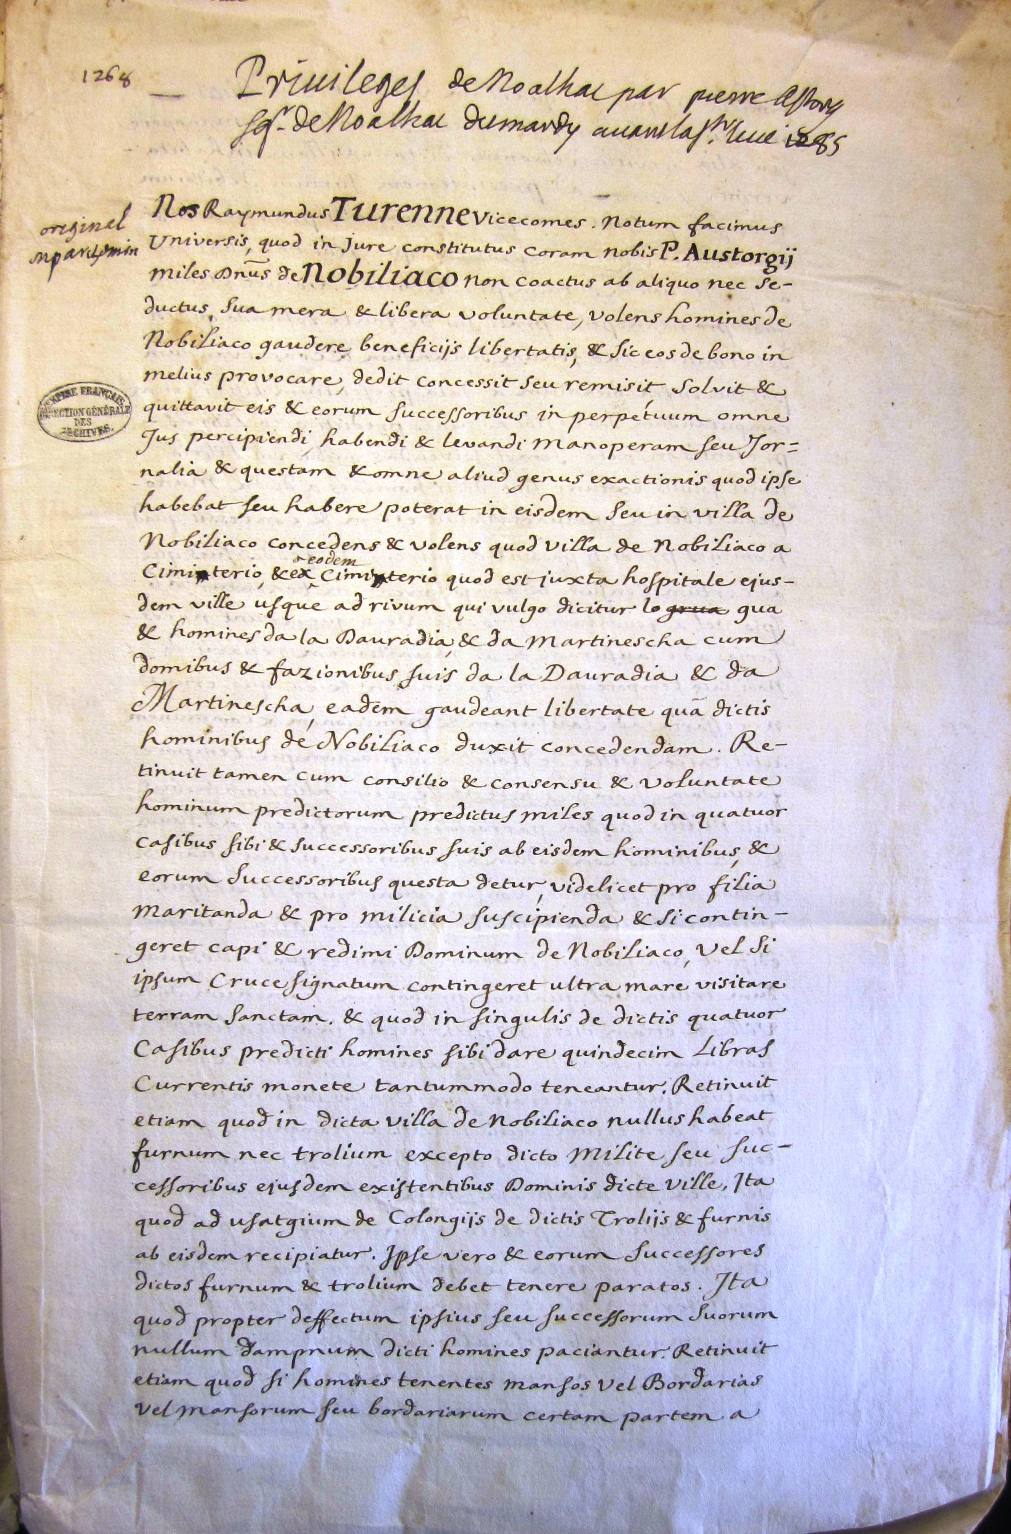 1268
Privileges de Noalhac par pierre Astorg
sgr. de Noalhac du mardy avant la st. luce 1285
original
en parchemin
Nos Raymundus Turenne Vicecomes. Notum facimus
Universis, quod in Jure constitutus coram nobis P. Austorgij
miles Dnūs de Nobiliaco non coactus ab aliquo nec se-
ductus, sua mera & libera voluntate, volens homines de
Nobiliaco gaudere beneficijs libertatis, & sic eos de bono in
melius provocare, dedit concessit seu remisit solvit &
quittavit eis & eorum successoribus in perpetuum omne
Jus percipiendi, habendi & levandi manoperam seu Jor=
nalia & questam & omne aliud genus exactionis quod ipse
habebat seu habere poterat in eisdem seu in villa de
Nobiliaco concedens & volens quod villa de Nobiliaco a
Cimiterio, & ex eodem Cimiterio quod est juxta hospitale ejus-
dem ville usque ad rivum qui vulgo dicitur lo grua gua
& homines da la Dauradia, & da Martinescha cum
domibus & fazionibus suis da la Dauradia & da
Martinescha, eadem gaudeant libertate quā dictis
hominibus de Nobiliaco duxit concedendam. Re-
tinuit tamen cum consilio & consensu & voluntate
hominum predictorum predictus miles quod in quatuor
casibus sibi & successoribus suis ab eisdem hominibus, &
eorum successoribus questa detur, videlicet pro filia
maritanda & pro milicia suscipienda & si contin-
geret capi & redimi Dominum de Nobiliaco, vel si
ipsum Crucesignatum contingeret ultra mare visitare
terram sanctam. & quod in singulis de dictis quatuor
Casibus predicti homines sibi dare quindecim Libras
Currentis monete tantummodo teneantur. Retinuit
etiam quod in dicta villa de Nobiliaco nullus habeat
furnum nec trolium excepto dicto Milite seu suc-
cessoribus ejusdem existentibus Dominis dicte ville, Ita
quod ad usatgium de Colongijs de dictis Trolijs & furnis
ab eisdem recipiatur. Ipse vero & eorum successores
dictos furnum & trolium debet tenere paratos. Ita
quod propter deffectum ipsius seu successorum suorum
nullum dampnum dicti homines paciantur. Retinuit
etiam quod si homines tenentes mansos vel Bordarias
vel mansorum seu bordariarum certam partem a
EMPIRE FRANÇAIS
DIRECTION GÉNÉRALE
DES
ARCHIVES.